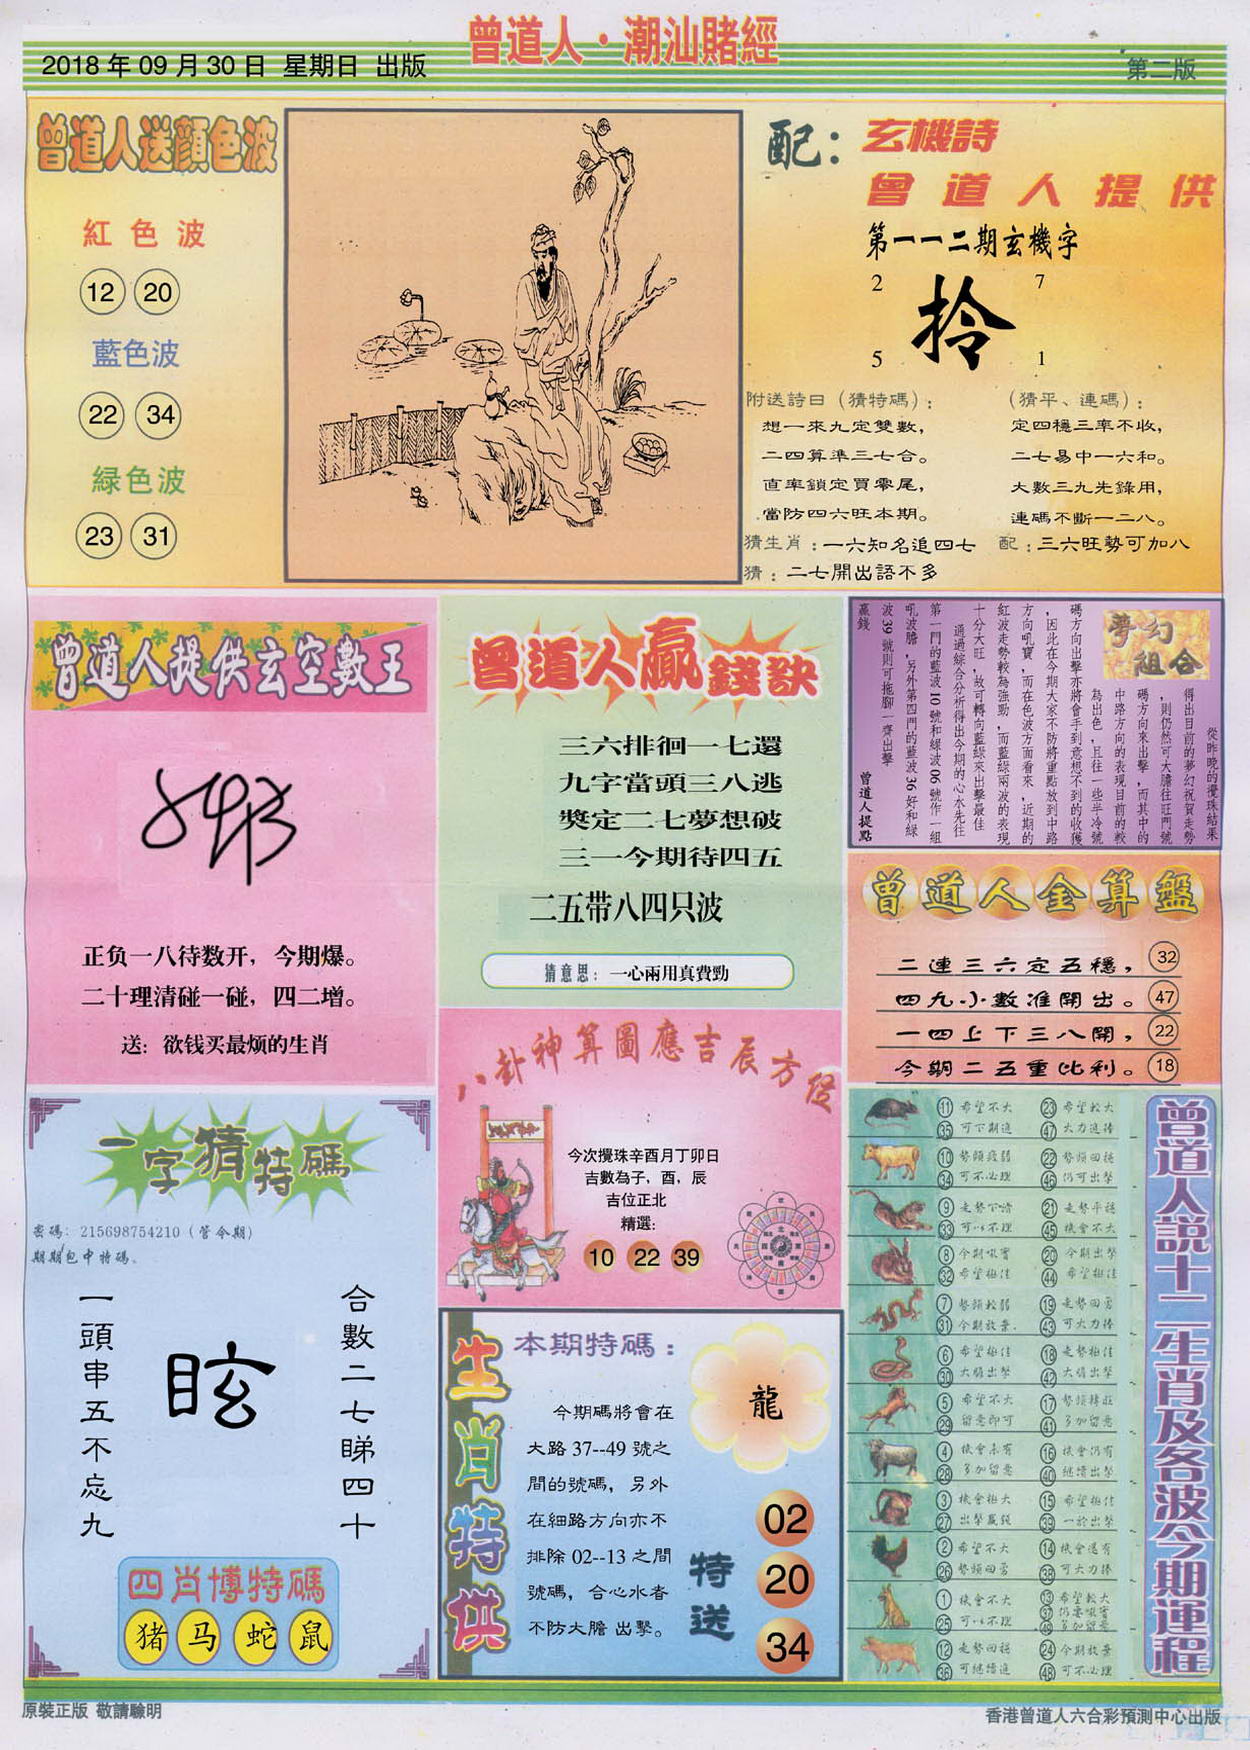 曾道人·潮汕賭經
2018年09月30日 星期日 出版
第二版
曾道人送顔色波
紅色波
12 20
藍色波
22 34
緑色波
23 31
配：玄機詩
曾道人提供
第一一二期玄機字
2 7
拎
5 1
附送詩曰（猜特碼）：
想一來九定雙數，
二四算準三七合。
直率鎖定買零尾，
當防四六旺本期。
（猜平、連碼）：
定四穩三率不收，
二七易中一六和。
大數三九先錄用，
連碼不斷一二八。
猜生肖：一六知名追四七 配：三六旺勢可加八
猜：二七開出語不多
曾道人提供玄空數王
正负一八待数开，今期爆。
二十理清碰一碰，四二增。
送：欲钱买最烦的生肖
曾道人贏錢訣
三六排徊一七還
九字當頭三八逃
獎定二七夢想破
三一今期待四五
二五带八四只波
猜意思：一心兩用真費勁
夢幻組合
從昨晚的攪珠結果
得出目前的夢幻祝賀走勢
，則仍然可大膽往旺門號
碼方向來出擊，而其中的
中路方向的表現目前的較
為出色，且往一些半冷號
碼方向出擊亦將會手到意想不到的收獲
，因此在今期大家不防將重點放到中路
方向吼寶，而在色波方面看來，近期的
紅波走勢較為強勁，而藍綠兩波的表現
十分大旺，故可轉向藍綠來出擊最佳
通過綜合分析得出今期的心水先往
第一門的藍波10號和綠波06號作一組
吼波膽，另外第四門的藍波36好和綠
波39號則可拖腳一齊出擊
贏錢
曾道人提點
曾道人金算盤
二連三六定五穩，32
四九小數准開出。47
一四上下三八開，22
今期二五重比利。18
八卦神算圖應吉辰方位
今次攪珠辛酉月丁卯日
吉數為子，酉，辰
吉位正北
精選：
10 22 39
一字猜特碼
密碼：215698754210（管令期）
期期包中特碼。
合數二七睇四十
眩
一頭串五不忘九
四肖博特碼
猪 马 蛇 鼠
生肖特供
本期特碼：
龍
今期碼將會在
大路37--49號之
間的號碼，另外
在細路方向亦不
排除02--13之間
號碼，合心水者
不防大膽出擊。
特送
02
20
34
曾道人説十二生肖及各波今期運程
11 希望不大 23 希望較大
35 可下期進 47 大力進捧
10 勢頭疲弱 22 勢頭回穩
34 可不必理 46 仍可出擊
9 走勢不清 21 走勢平穩
33 可以不理 45 機會不大
8 今期吼寶 20 今期出擊
32 希望極佳 44 希望極佳
7 勢頭較弱 19 走勢回勇
31 今期放棄 43 可大力捧
6 希望極佳 18 走勢極佳
30 大膽出擊 42 大膽出擊
5 希望不大 17 勢頭轉旺
29 留意即可 41 多加留意
4 機會未有 16 機會仍有
28 多加留意 40 繼續出擊
3 機會極大 15 希望極佳
27 出擊贏錢 39 一於出擊
2 希望不大 14 機會還有
26 勢頭回勇 38 可大力捧
1 機會不大 13 希望較大
25 可以不理 37 仍要吼實
49 多加留意
12 走勢回穩 24 今期放棄
36 可繼續進 48 可不必理
原裝正版 敬請驗明
香港曾道人六合彩預測中心出版